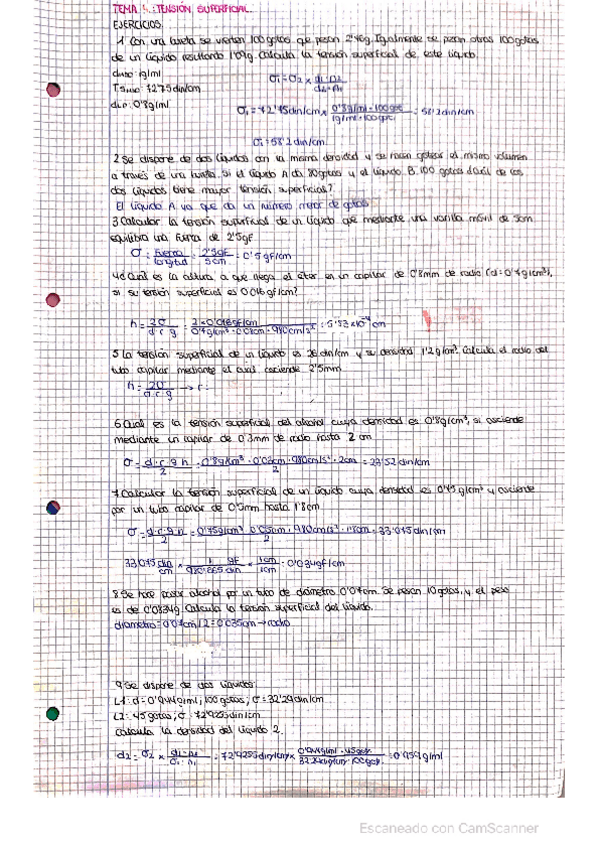 TEMA 4: TENSIÓN SUPERFICIAL
EJERCICIOS
1 Con una tareta se vierten 100 gotas que pesan 2'46g. Igualmente se pesan otras 100 gotas
de un líquido resultando 1'09g. Calcula la tensión superficial de este líquido.
1g/ml
72'75 din/cm
0'8g/ml
σ1 = σ2 x
σ1 = 72'75 din/cm x 0'8g/ml · 100 = 58'2 din/cm
1g/ml · 100
σ1 = 58'2 din/cm
2 Se dispone de dos líquidos con la misma densidad y se hacen gotear el mismo volumen
a través de una tareta. Si el líquido A da 80 gotas y el líquido B 100 gotas ¿Cuál de los
dos líquidos tiene mayor tensión superficial?
El líquido A ya que da un número menor de gotas
3 Calcular la tensión superficial de un líquido que mediante una varilla móvil de 5cm
equilibra una fuerza de 2'5gf
σ = Fuerza / longitud = 2'5gf / 5cm = 0'5 gf/cm
4 ¿Cuál es la altura a que llega el éter en un capilar de 0'8mm de radio (d=0'7g/cm³),
si su tensión superficial es 0'016 gf/cm?
h = 2σ / d·r·g = 2·0'016gf/cm
5 La tensión superficial de un líquido es 26 din/cm y su densidad 1'2 g/cm³. Calcula el radio del
tubo capilar mediante el cual asciende 2'5mm.
h = 2σ / d·r·g → r =
6 Cuál es la tensión superficial del alcohol cuya densidad es 0'8g/cm³, si asciende
mediante un capilar de 0'3mm de radio hasta 2 cm
σ = d·r·g·h / 2 = 0'8g/cm³ · 0'03cm · 980cm/s² · 2cm / 2 = 23'52 din/cm
7 Calcular la tensión superficial de un líquido cuya densidad es 0'75 g/cm³ y asciende
por un tubo capilar de 0'5mm hasta 1'8cm
σ = d·r·g·h / 2 = 0'75g/cm³ · 0'05cm · 980cm/s² · 1'8cm / 2 = 33'075 din/cm
33'075 din/cm x 1 gf / 980'665 din x 1cm / 1cm = 0'034gf/cm
8 Se hace pasar alcohol por un tubo de diámetro 0'07cm. Se pesan 10 gotas, y el peso
es de 0'0534g. Calcula la tensión superficial del líquido.
diámetro = 0'07cm / 2 = 0'035cm → radio
9 Se dispone de dos líquidos:
L1: d = 0'944g/ml, 100 gotas, σ = 32'24 din/cm
L2: 45 gotas, σ = 72'9255 din/cm
Calcula la densidad del líquido 2.
d2 = σ2 x = 72'9255 din/cm x 0'944g/ml · 45 = 0'959 g/ml
Escaneado con CamScanner